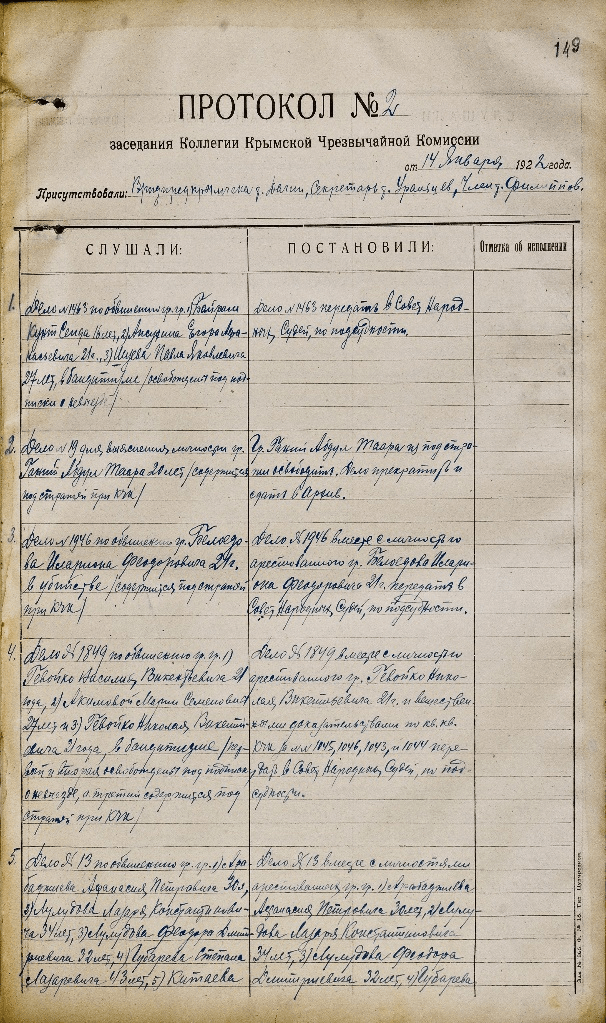 149
ПРОТОКОЛ № 2
заседания Коллегии Крымской Чрезвычайной Комиссии
от 14 Января 1922 года.
Присутствовали: т. Дагин, Секретарь т. Член т. Филиппов.
СЛУШАЛИ: ПОСТАНОВИЛИ: Отметка об исполнении
1. Дело № 1463 по обвинению гр. гр. 1)
Курт Сеида 16 лет, 2) Егора
21 г., 3) Павла Яковлевича
27 лет, в бандитизме /освобождены под под-
писки о невыезде/
Дело № 1463 передать в Совет Народ-
ных Судей, по подсудности.
2. Дело № 19 для выяснения личности гр.
Абдул 20 лет /содержится
под стражей при КЧК/
Гр. Абдул из под стра-
жи освободить. Дело прекратить и
сдать в Архив.
3. Дело № 1946 по обвинению гр. Белоедо-
ва Илариона Феодоровича 21 г.
в убийстве /содержится под стражей
при КЧК/
Дело № 1946 вместе с личностью
арестованного гр. Белоедова Илари-
она Феодоровича 21 г. передать в
Совет Народных Судей, по подсудности.
4. Дело № 1849 по обвинению гр. гр. 1)
Гевойко Василия Викентьевича 21
года, 2) Акимовой Марии Семеновны
27 лет и 3) Гевойко Николая Викенть-
евича 21 года, в бандитизме /пер-
вый и вторая освобождены под подписку
о невыезде, а третий содержится под
стражей при КЧК/
Дело № 1849 вместе с личностью
арестованного гр. Гевойко Нико-
лая Викентьевича 21 г. и веществен-
ными доказательствами по кв. кв.
КЧК за № № 1045, 1046, 1043, и 1044 пере-
дать в Совет Народных Судей, по под-
судности.
5. Дело № 13 по обвинению гр. гр. 1) Ара-
баджиева Афанасия Петровича 30 л.,
2) Лулудова Лазаря Константинови-
ча 34 лет, 3) Лулудова Феодора Дмит-
риевича 32 лет, 4) Губарева Степана
Лазаревича 43 лет, 5) Китаева
Дело № 13 вместе с личностями
арестованных гр. гр. 1) Арабаджиева
Афанасия Петровича 30 лет, 2) Лулу-
дова Лазаря Константиновича
34 лет, 3) Лулудова Феодора
Дмитриевича 32 лет, 4) Губарева